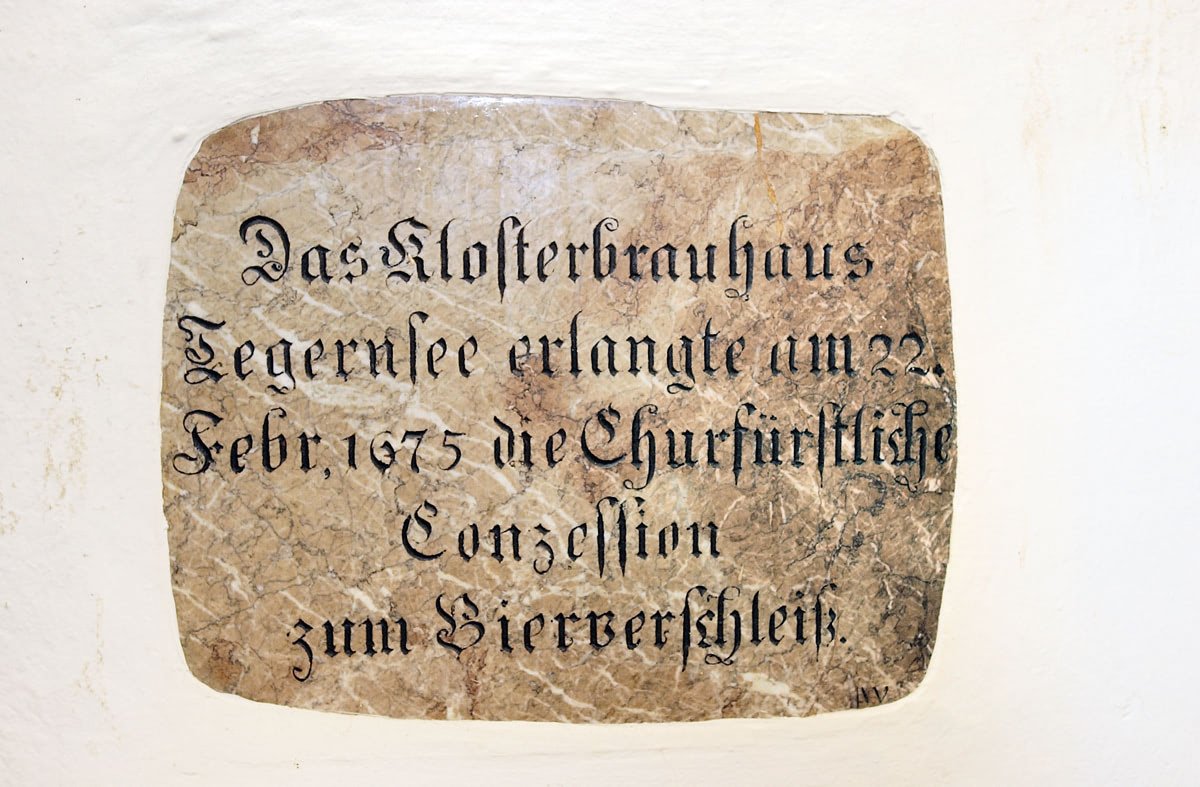 Das Klosterbrauhaus
Tegernsee erlangte am 22.
Febr, 1675 die Churfürstliche
Conzession
zum Bierverschleiß.